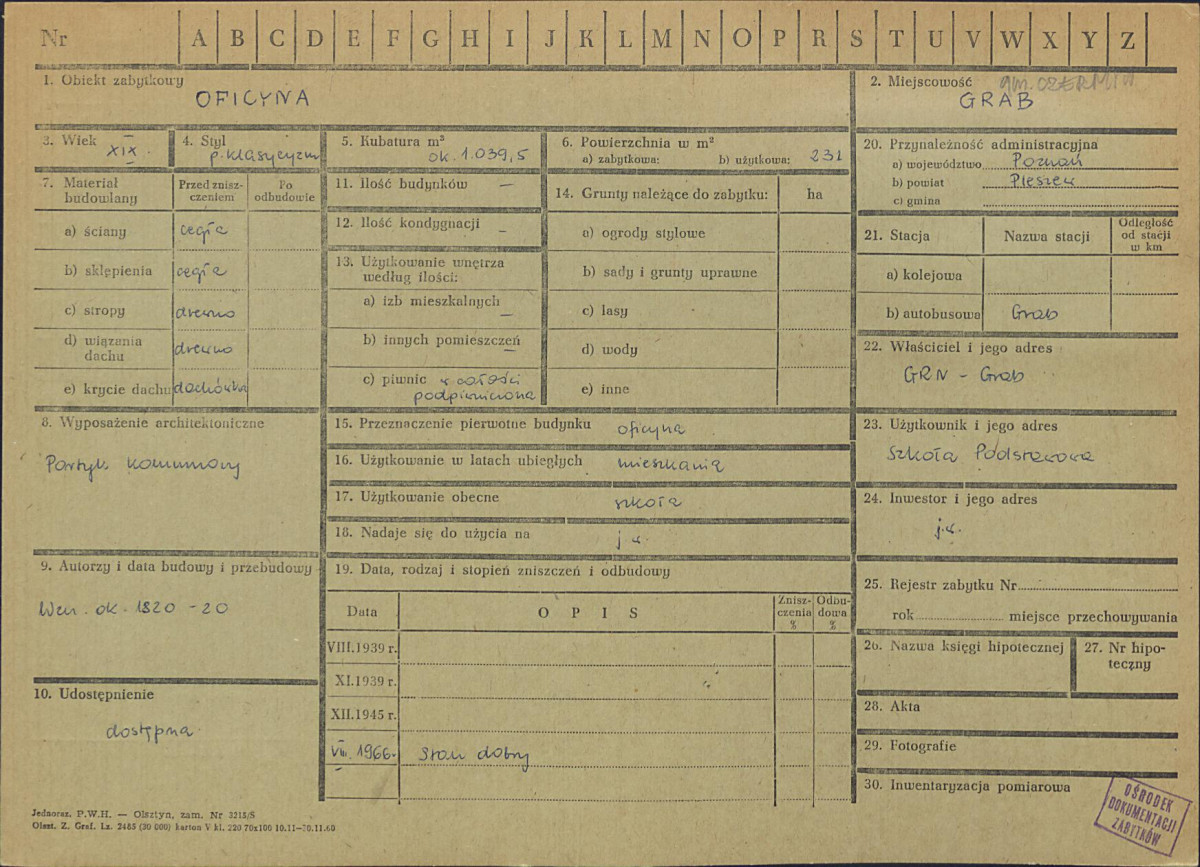 Nr A B C D E F G H I J K L M N O P R S T U V W X Y Z
1. Obiekt zabytkowy
OFICYNA
2. Miejscowość gm. CZERMIN
GRAB
3. Wiek XIX
4. Styl p. klasycyzm
5. Kubatura m³
ok. 1.039,5
6. Powierzchnia w m²
a) zabytkowa: b) użytkowa: 231
20. Przynależność administracyjna
a) województwo Poznań
b) powiat Pleszew
c) gmina
7. Materiał budowlany
Przed zniszczeniem
Po odbudowie
a) ściany cegła
b) sklępienia cegła
c) stropy drewno
d) wiązania dachu drewno
e) krycie dachu dachówka
11. Ilość budynków –
12. Ilość kondygnacji –
13. Użytkowanie wnętrza
według ilości:
a) izb mieszkalnych –
b) innych pomieszczeń –
c) piwnic w całości
podpiwniczona
14. Grunty należące do zabytku: ha
a) ogrody stylowe
b) sady i grunty uprawne
c) lasy
d) wody
e) inne
21. Stacja Nazwa stacji
Odległość
od stacji
w km
a) kolejowa
b) autobusowa Grab
22. Właściciel i jego adres
GRN – Grab
8. Wyposażenie architektoniczne
Portyk kolumnowy
15. Przeznaczenie pierwotne budynku oficyna
16. Użytkowanie w latach ubiegłych mieszkania
17. Użytkowanie obecne szkoła
18. Nadaje się do użycia na j w.
23. Użytkownik i jego adres
Szkoła Podstawowa
24. Inwestor i jego adres
j.w.
9. Autorzy i data budowy i przebudowy
ok. 1820 -20
19. Data, rodzaj i stopień zniszczeń i odbudowy
Data OPIS
Znisz-
czenia
%
Odbu-
dowa
%
VIII.1939 r.
XI.1939 r.
XII.1945 r.
VIII. 1966. Stan dobry
25. Rejestr zabytku Nr
rok miejsce przechowywania
26. Nazwa księgi hipotecznej
27. Nr hipo-
teczny
28. Akta
29. Fotografie
30. Inwentaryzacja pomiarowa
10. Udostępnienie
dostępna
OŚRODEK
DOKUMENTACJI
ZABYTKÓW
Jednoraz. P.W.H. — Olsztyn, zam. Nr 3215/S
Olszt. Z. Graf. Lz. 2485 (30 000) karton V kl. 220 70x100 10.11—30.11.60